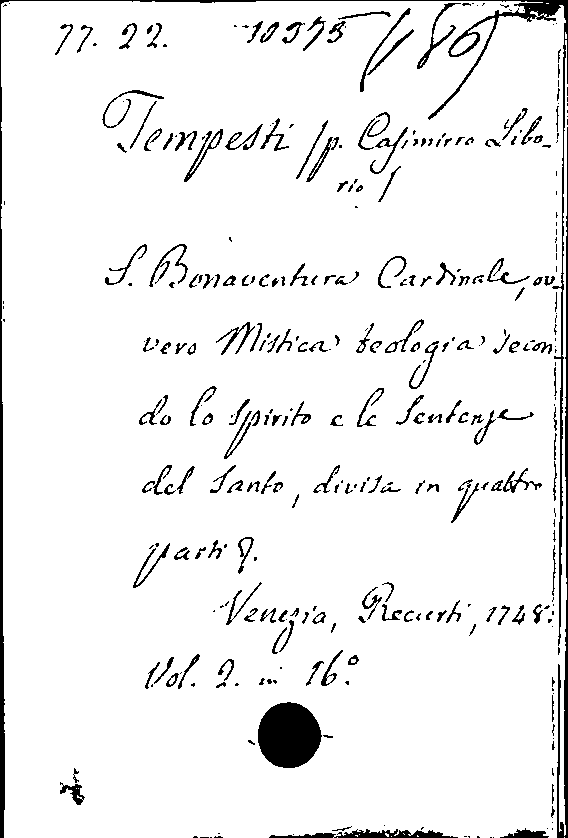 77. 22. 10573 /180)
Tempesti /p. Casimirro Libo-
rio /
S. Bonaventura Cardinale, ov-
vero Mistica teologia secon
do lo spirito e le sentenze
del Santo, divisa in quattro
parti &.
Venezia, Recurti, 1748.
Vol. 2. in 16.°